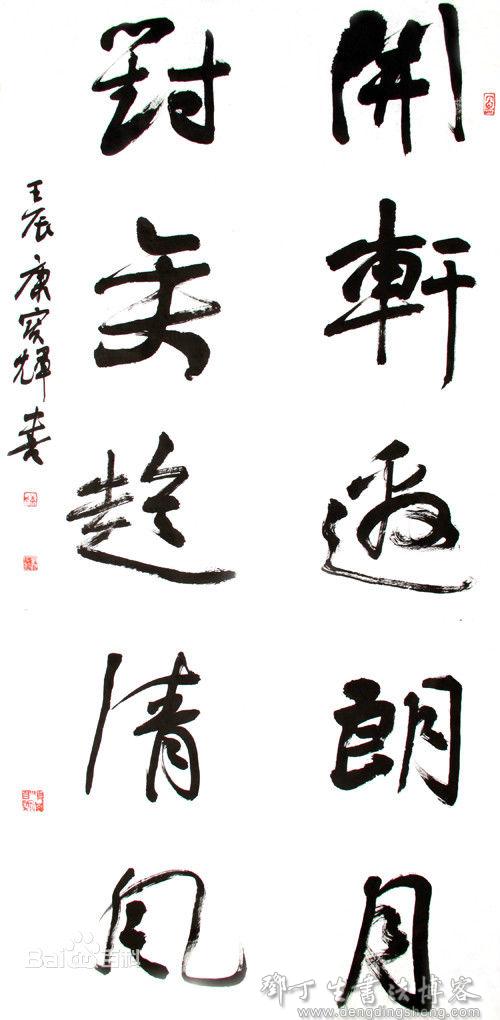 開軒邀朗月
對奕趁清風
壬辰康寶輝書
Bai百科
鄧丁生書法博客
www.dengdingsheng.com